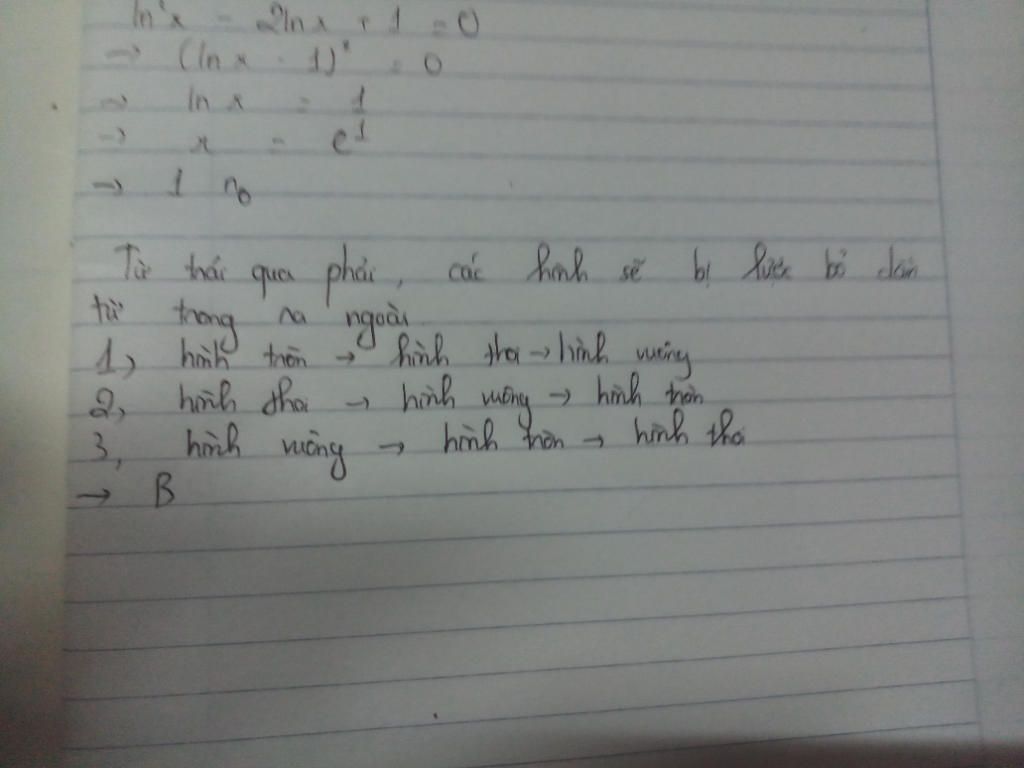 ln²x - 2lnx + 1 = 0
→ (lnx - 1)² = 0
→ lnx = 1
→ x = e¹
→ 1 n₀
Từ trái qua phải, các hình sẽ bị lược bỏ dần
từ trong ra ngoài
1, hình tròn → hình thoi → hình vuông
2, hình thoi → hình vuông → hình tròn
3, hình vuông → hình tròn → hình thoi
→ B